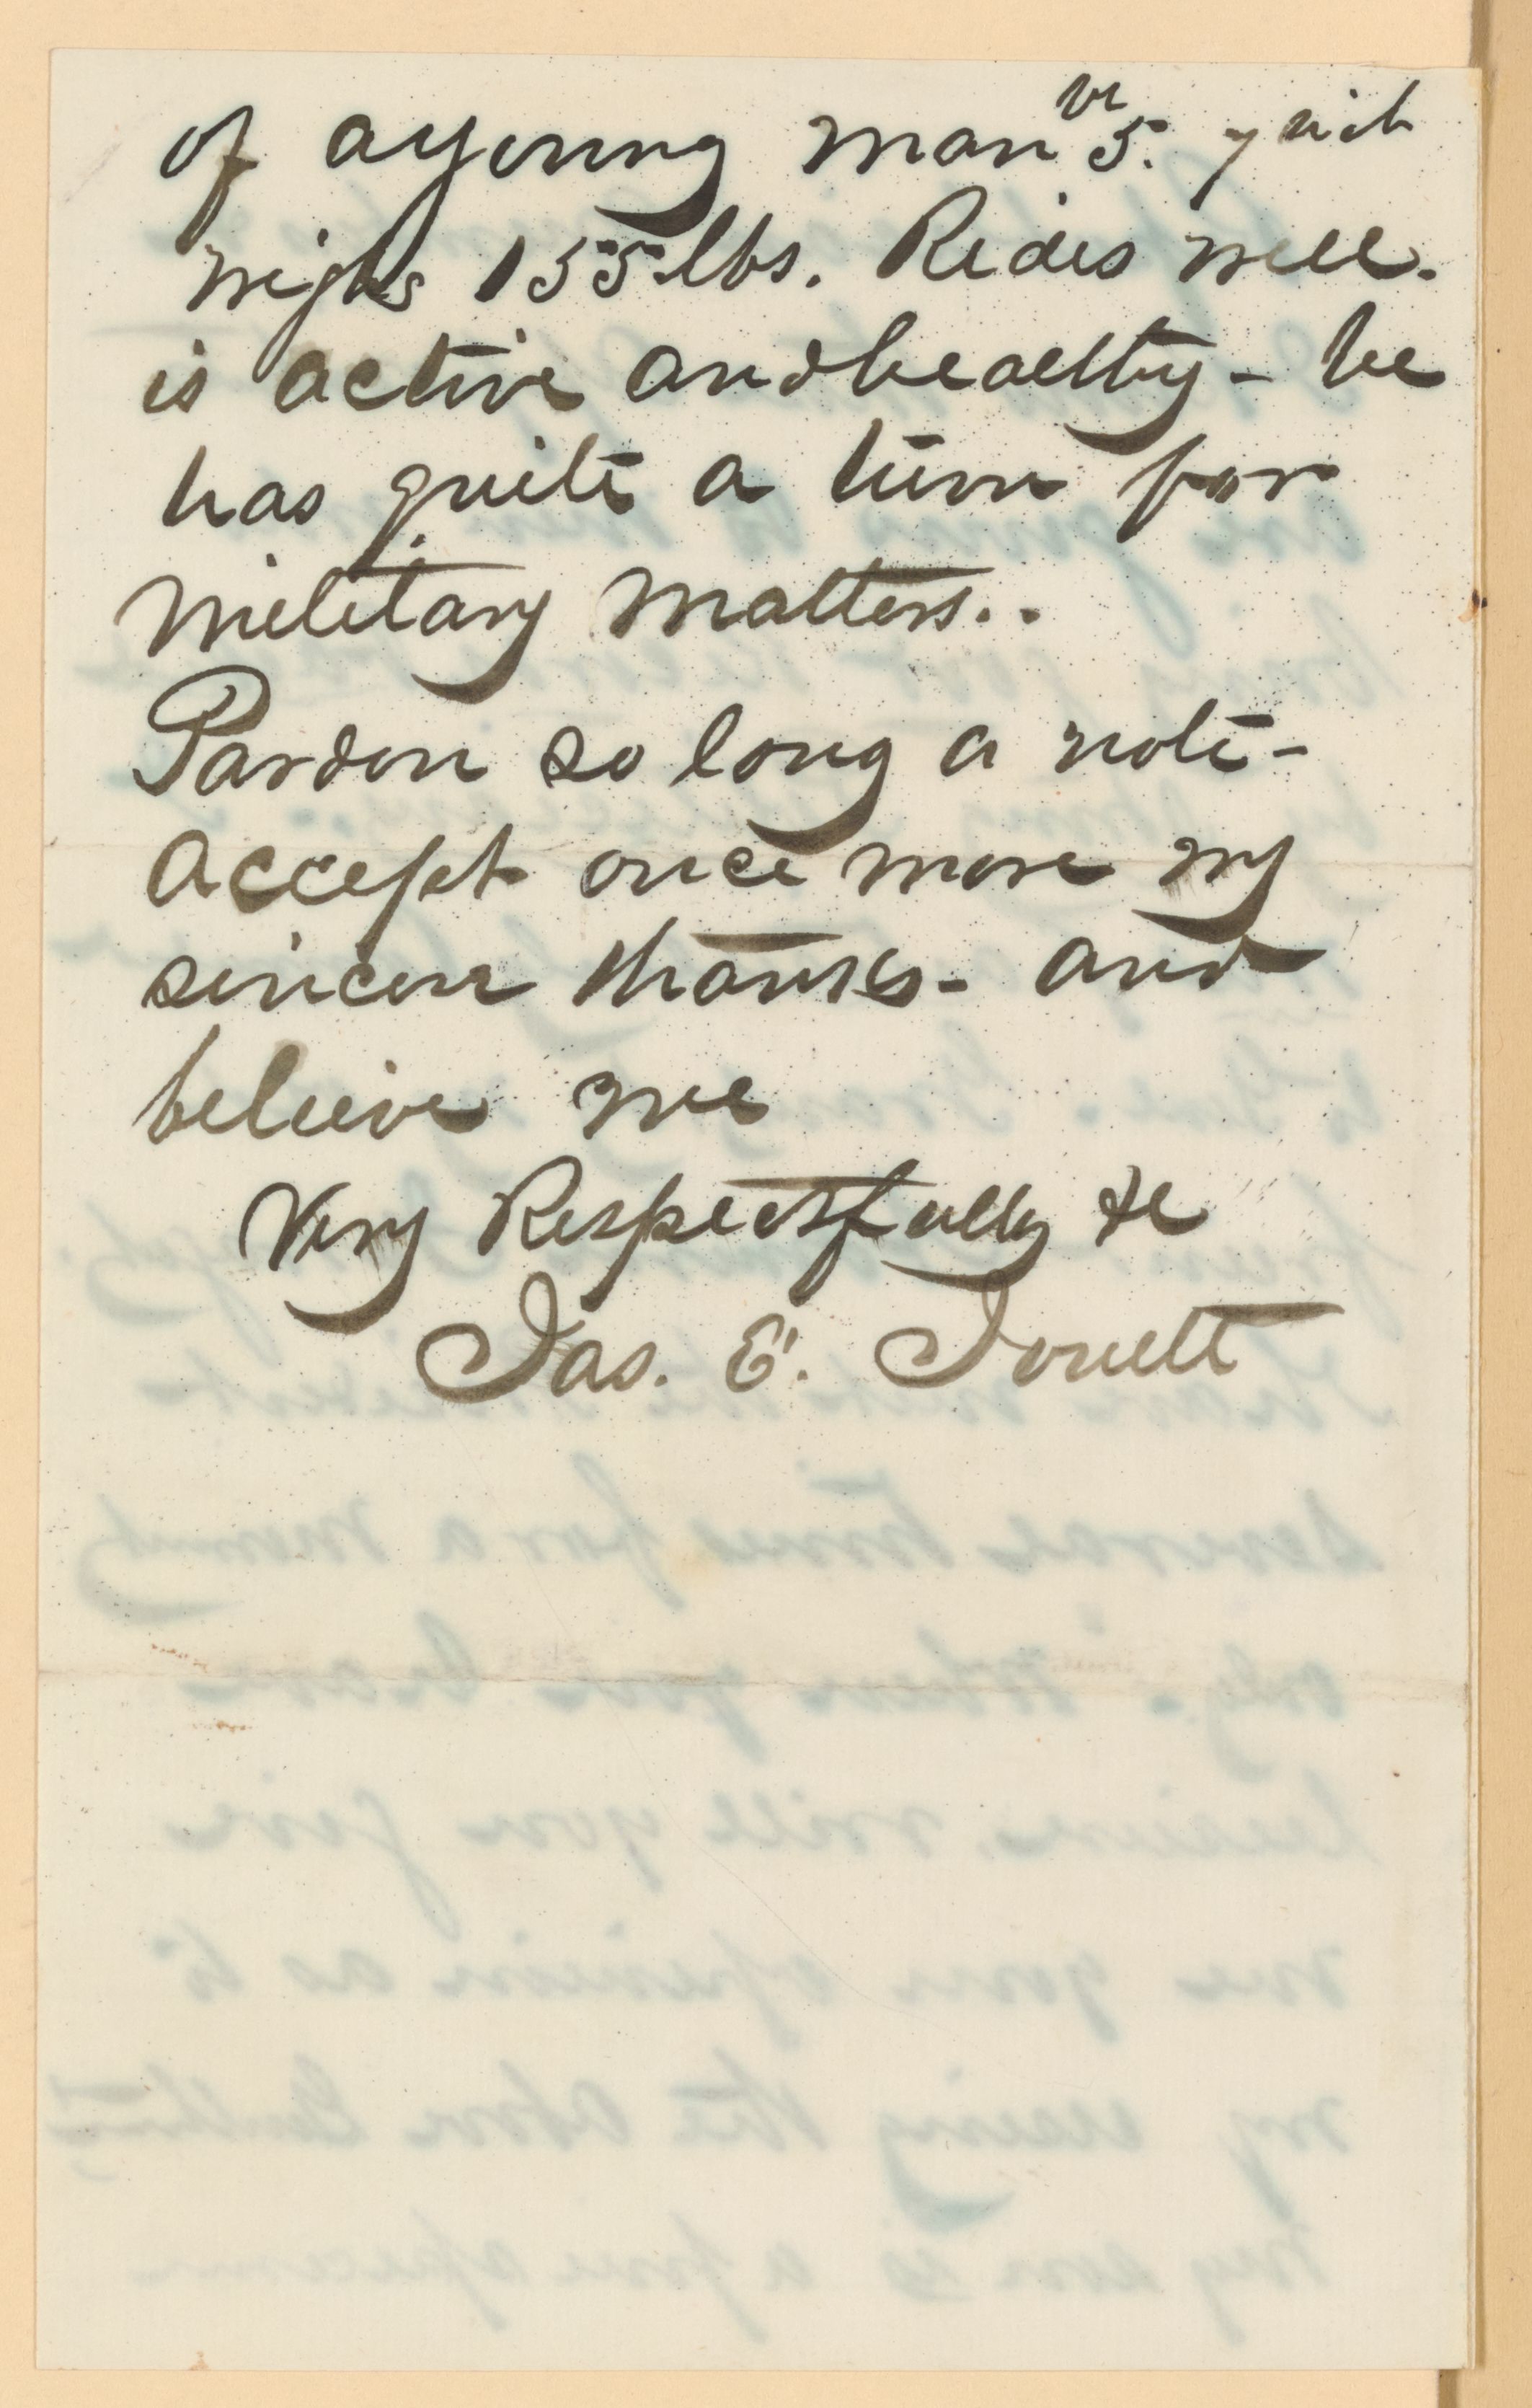 of a young man 5. 7 inch
weighs 155 lbs. Rides well.
is active and healthy - he
has quite a turn for
military matters..
Pardon so long a note -
accept once more my
sincere thanks - and
believe me
Very Respectfully &c
Jas. E. Jouett